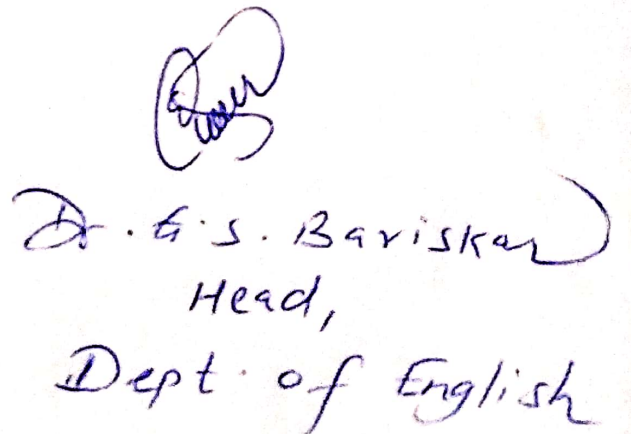 Dr. G.S. Bariskar
Head,
Dept. of English